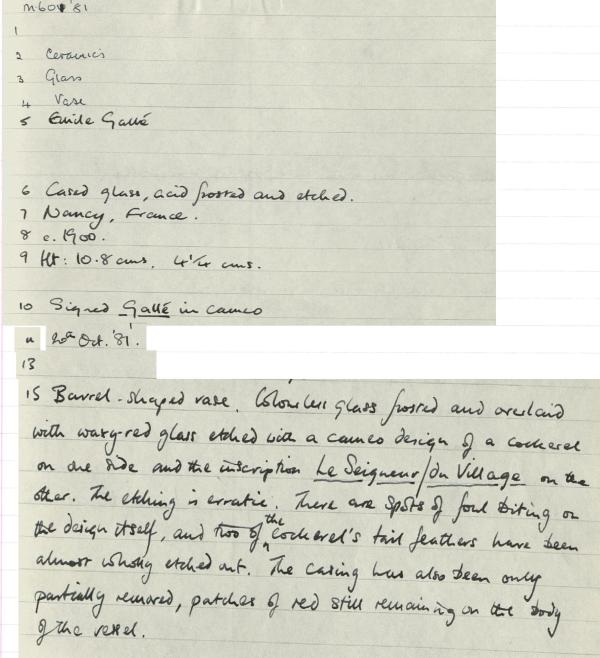 1
2 Ceramics
3 Glass
4 Vase
5 Emile Gallé
6 Cased glass, acid frosted and etched.
7 Nancy, France.
8 c. 1900.
9 Ht: 10.8 cms. 4¼ cms.
10 Signed Gallé in cameo
Oct. '81.
13
15 Barrel-shaped vase. Colourless glass frosted and overlaid
with waxy-red glass etched with a cameo design of a cockerel
on one side and the inscription Le Seigneur/du Village on the
other. The etching is erratic. There are spots of foul biting on
the design itself, and two of the cockerel's tail feathers have been
almost wholly etched out. The casing has also been only
partially removed, patches of red still remaining on the body
of the vessel.